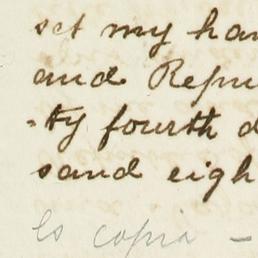 set my han
and Repu
-ty fourth d
sand eigh
Es copia -